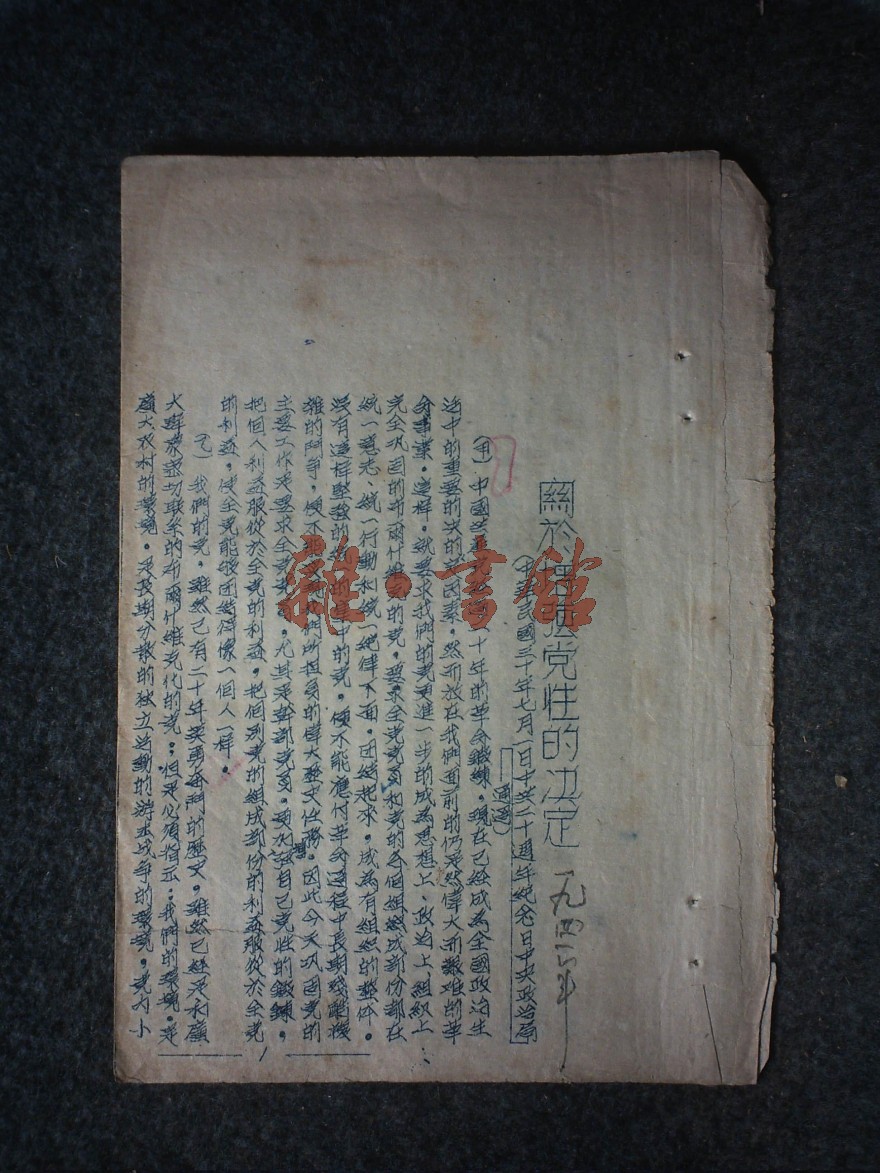 關於增强党性的决定
一九四一年
(中華民國三十年七月一日中共二十週年紀念日中央政治局
通過)
(甲)中國共產党經過二十年的革命鍛鍊,現在已經成為全國政治生
活中的重要的决的因素,然而放在我們面前的仍是然偉大而艱难的革
命事業,這样,就要求我們的党更進一步的成為思想上、政治上、組織上
完全巩固的布爾什維克的党,要求全党党員和党的各個組織成部份都在
統一意志、統一行動和統一紀律下面,团結起來,成為有組織的整体。
沒有這样堅强的統一的集中的党,便不能應付革命过程中長期残酷複
雜的鬥争,便不能实現我們所担負的偉大歷史任務。因此今天巩固党的
主要工作是要求全党党員,尤其是幹部党員,更加强自己党性的鍛鍊,
把個人利益服從於全党的利益,把個别党的組成部份的利益服從於全党
的利益,使全党能够团結得像一個人一样。
(乙)我們的党,雖然已有二十年英勇奋鬥的歷史,雖然已經是永廣
大群衆密切联系的布爾什維克化的党:但是必須指示:我們的環境,是
廣大农村的環境,是長期分散的独立活動的游击战争的環境,党内小
雜·書館